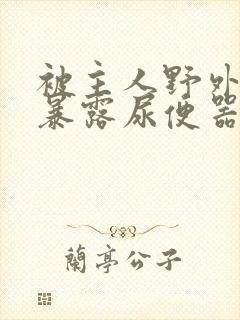 被主人野外
暴露尿便器
蘭亭公子